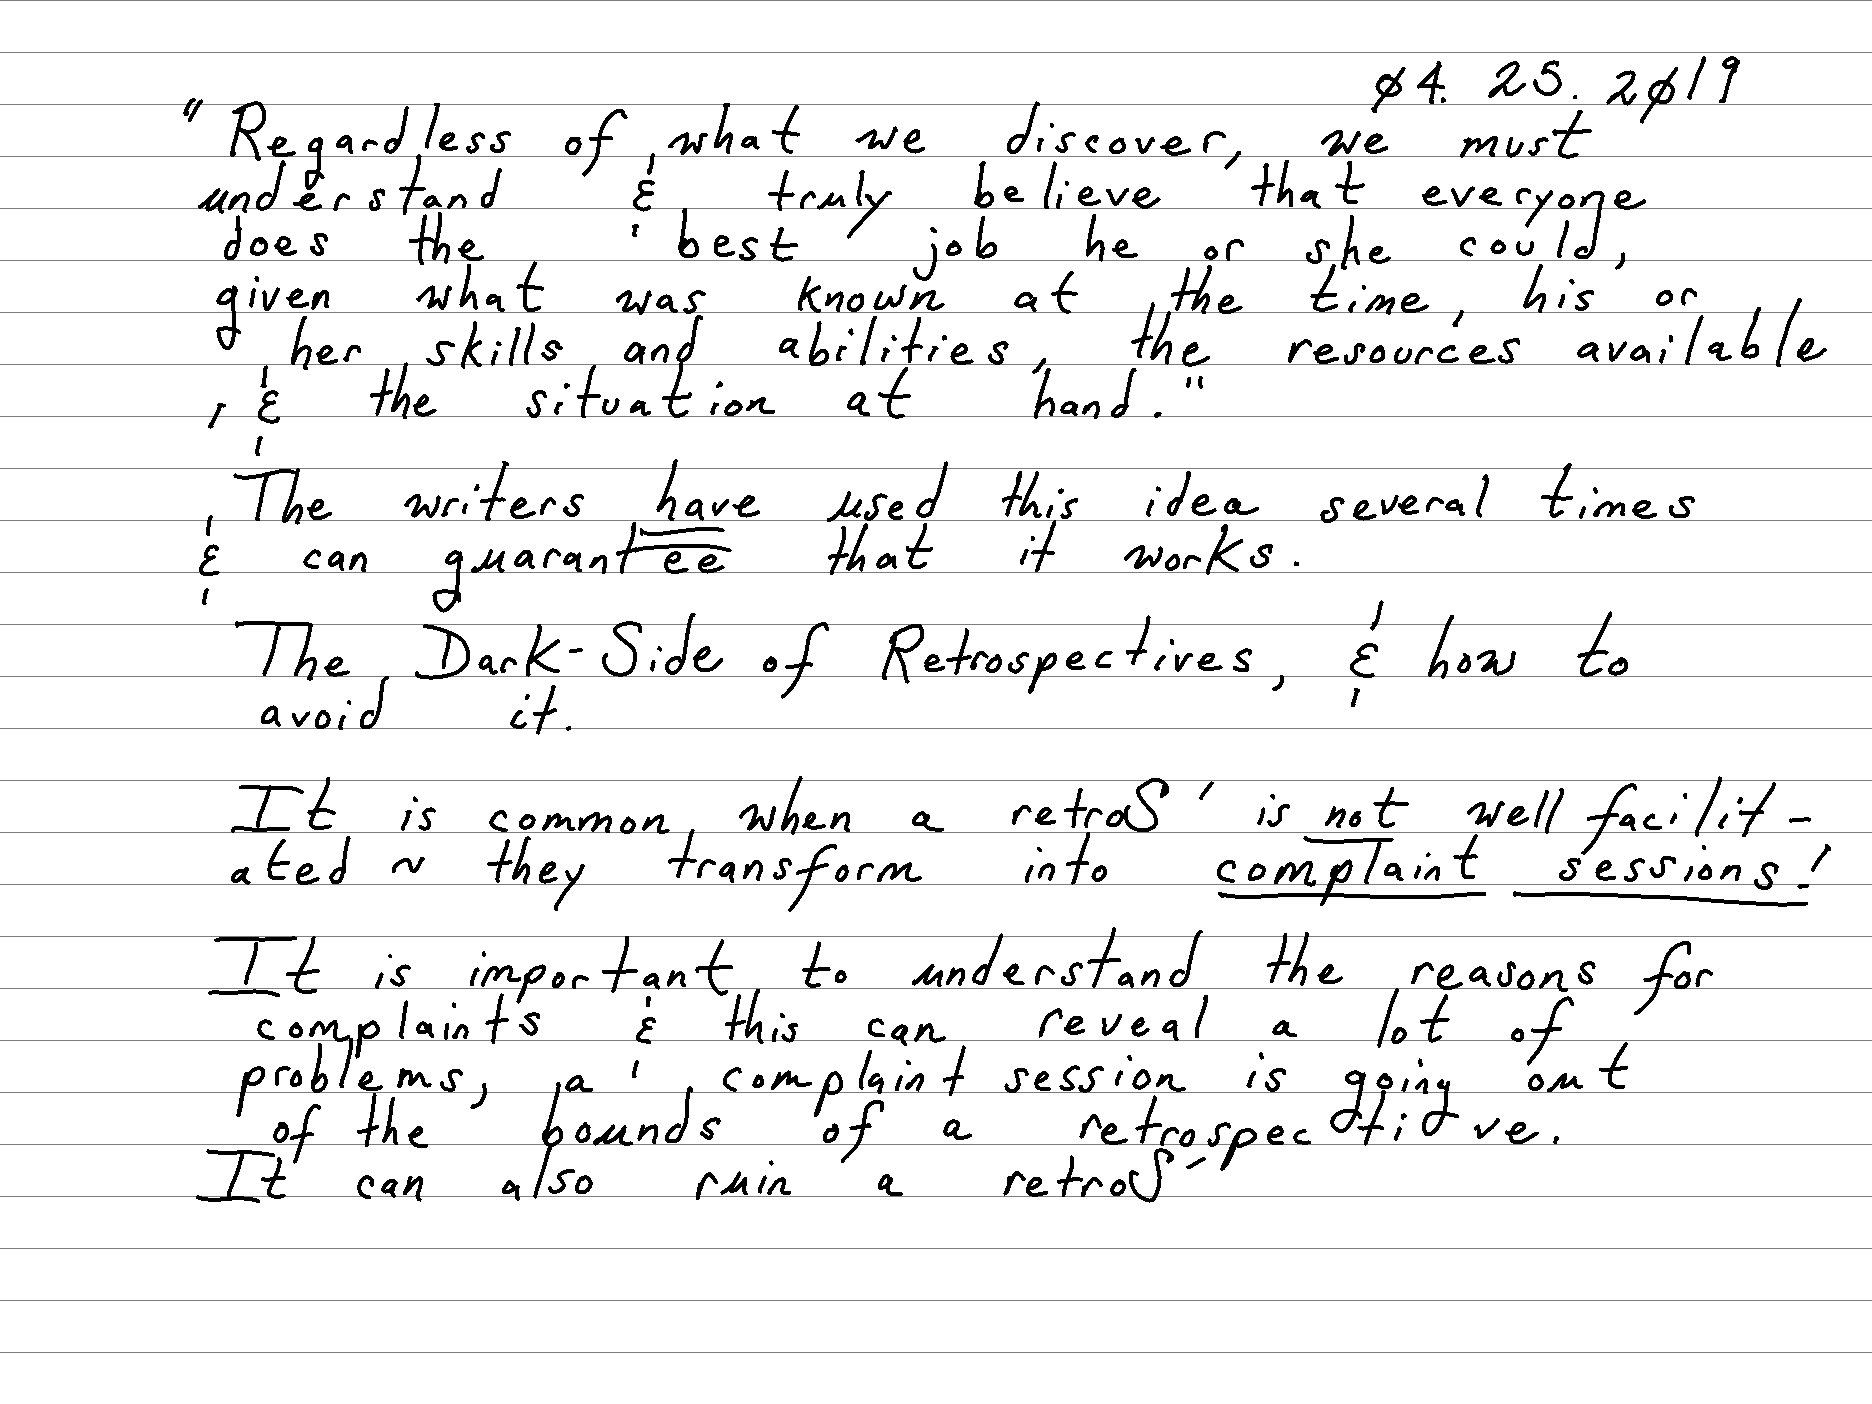 04. 25. 2019
"Regardless of what we discover, we must
understand & truly believe that everyone
does the best job he or she could,
given what was known at the time, his or
her skills and abilities, the resources available
, & the situation at hand."
The writers have used this idea several times
& can guarantee that it works.
The Dark-Side of Retrospectives, & how to
avoid it.
It is common, when a retroS' is not well facilit-
ated ~ they transform into complaint sessions!
It is important to understand the reasons for
complaints & this can reveal a lot of
problems, a complaint session is going out
of the bounds of a retrospective.
It can also ruin a retroS'